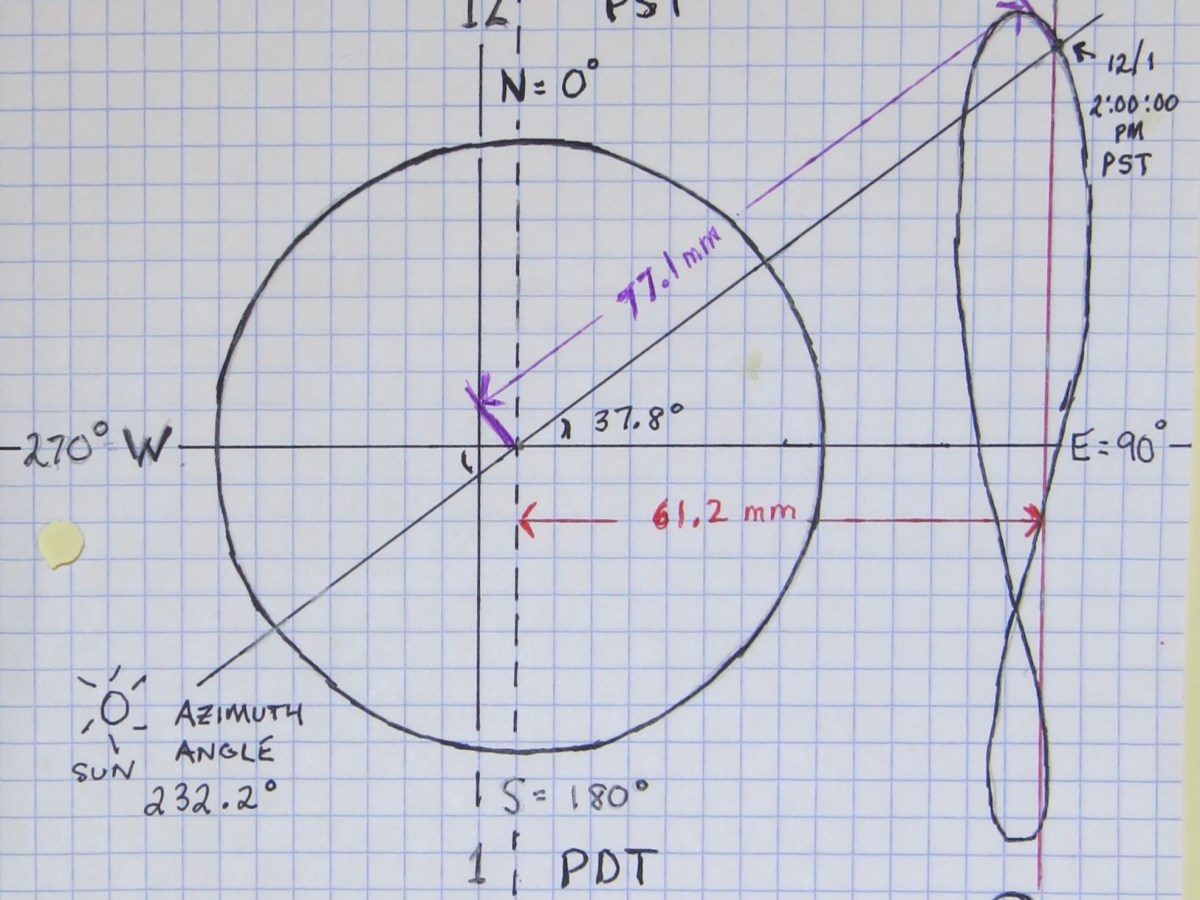 12 PST
N = 0°
12/1
2:00:00
PM
PST
77.1 mm
37.8°
270° W
E = 90°
61.2 mm
SUN
AZIMUTH
ANGLE
232.2°
S = 180°
1 PDT